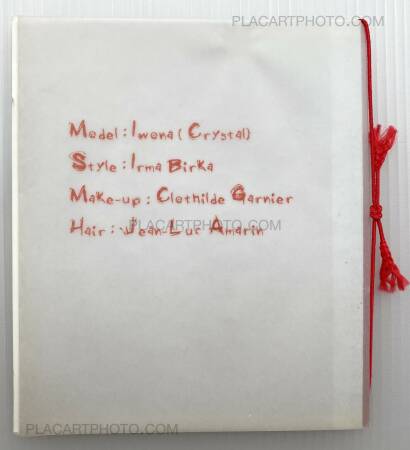 PLACARTPHOTO.COM
Model : Iwona ( Crystal)
Style : Irma Birka
Make-up : Clothilde Garnier
Hair : Jean Luc Amarin
PLACARTPHOTO.COM
PLACARTPHOTO.COM
PLACARTPHOTO.COM